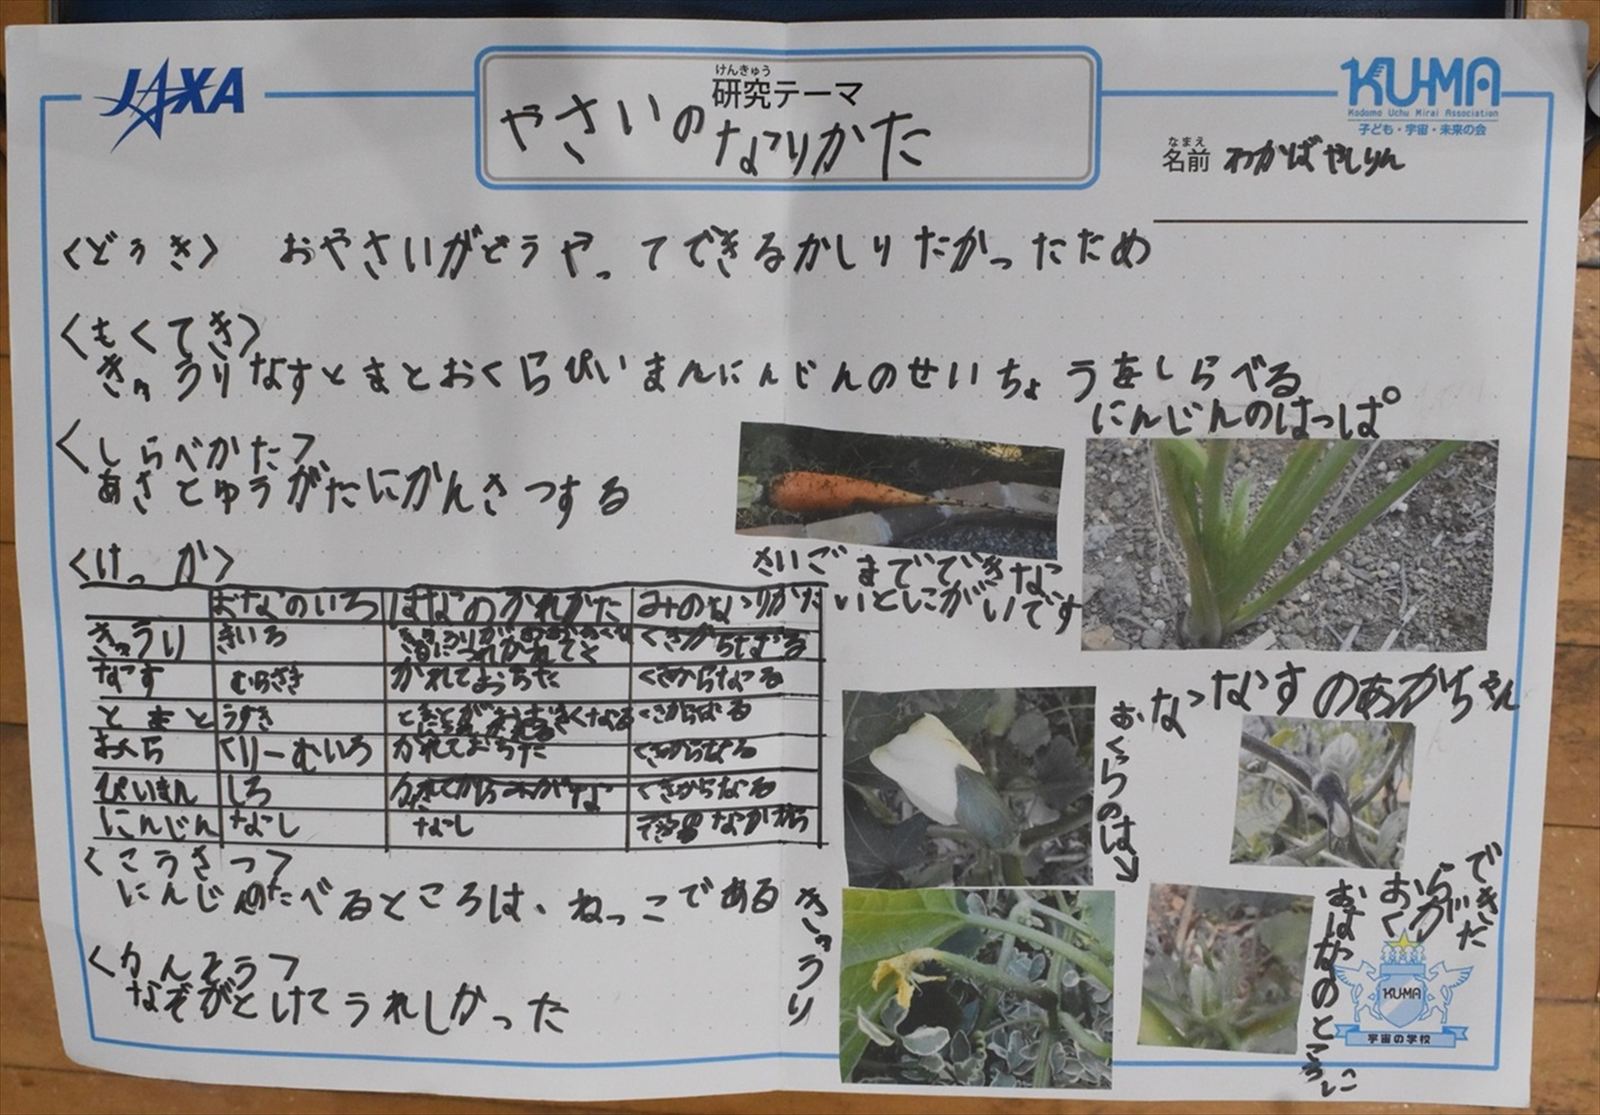 JAXA
けんきゅう
研究テーマ
やさいのなりかた
KU-MA
Kodomo Uchu Mirai Association
子ども・宇宙・未来の会
なまえ
名前 わかばやしりん
<どうき> おやさいがどうやってできるかしりたかったため
<もくてき>
きゅうりなすとまとおくらぴいまんにんじんのせいちょうをしらべる
<しらべかた>
あさとゆうがたにかんさつする
にんじんのはっぱ
さいごまでできな
いとしこがいいです
<けっか>
おなのいろ はなのかれかた みのなりかた
きゅうり きいろ くきからなる
なす むらさき かれておちた くきからなる
とまと うすき くきからなる
おくら くりーむいろ かれておちた くきからなる
ぴいまん しろ くきからなる
にんじん なし なし
<こうさつ>
にんじんのたべるところは、ねっこである
<かんそう>
なぞがとけてうれしかった
なすのあかちゃん
おくらのは
きゅうり
おくらができだ
おはなのところに
KU-MA
宇宙の学校